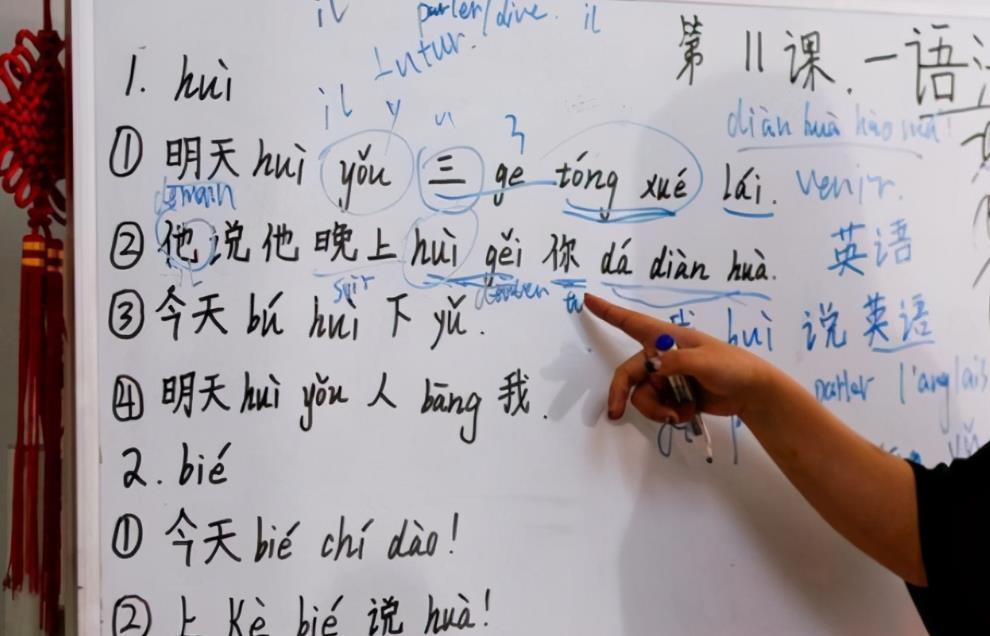 il parler/dire. il
Futur.
第11课.一语
1. huì
il y
diàn huà hǎo ma!
① 明天 huì yǒu 三 ge tóng xué lái. venir.
demain
② 他说他晚上 huì gěi 你 dá diàn huà. 英语
soir tu
③ 今天 bú huì 下 yǔ. huì 说英语
④ 明天 huì yǒu 人 bāng 我. parler l'anglais
2. bié
① 今天 bié chí dào!
② 上 Kè bié 说 huà!